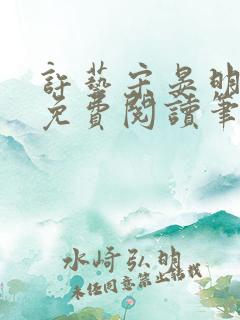 許藝宗晏明
免費閱讀筆
水崎弘明
未经同意禁止转载